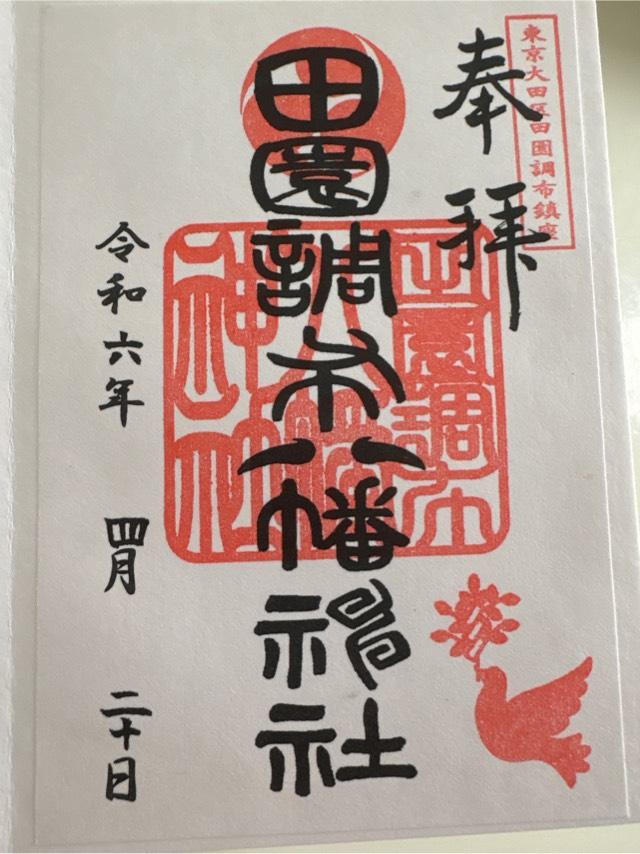 東京大田区田園調布鎮座
奉拝
田園調布八幡神社
田園調布八幡神社
令和六年 四月 二十日